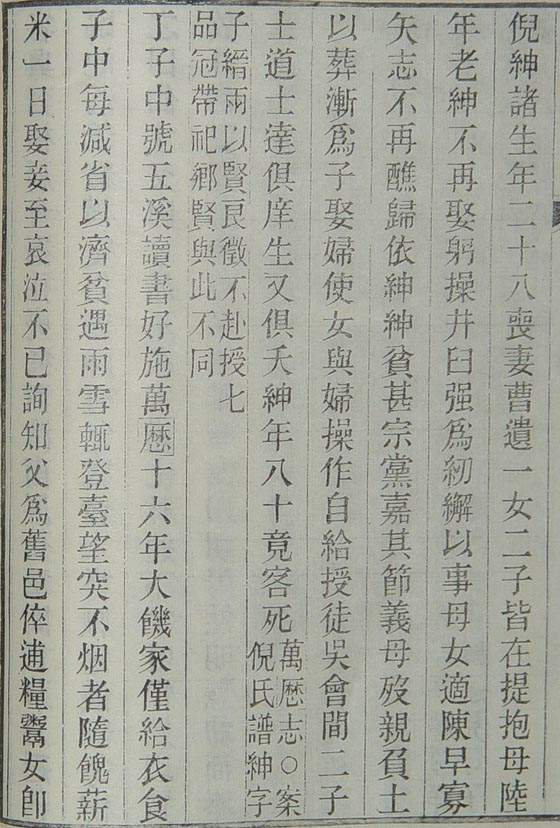 倪紳諸生年二十八喪妻曹遺一女二子皆在提抱母陸
年老紳不再娶躬操井臼强爲紉繲以事母女適陳早寡
矢志不再醮歸依紳紳貧甚宗黨嘉其節義母歿親負土
以葬漸爲子娶婦使女與婦操作自給授徒吳會間二子
士道士達俱庠生又俱夭紳年八十竟客死
萬厯志○案
倪氏譜紳字
子縉雨以賢良徵不赴授七
品冠帶祀鄉賢與此不同
丁子中號五溪讀書好施萬厯十六年大饑家僅給衣食
子中每減省以濟貧遇雨雪輒登臺望突不烟者隨餽薪
米一日娶妾至哀泣不已詢知父爲舊邑倅逋糧鬻女卽